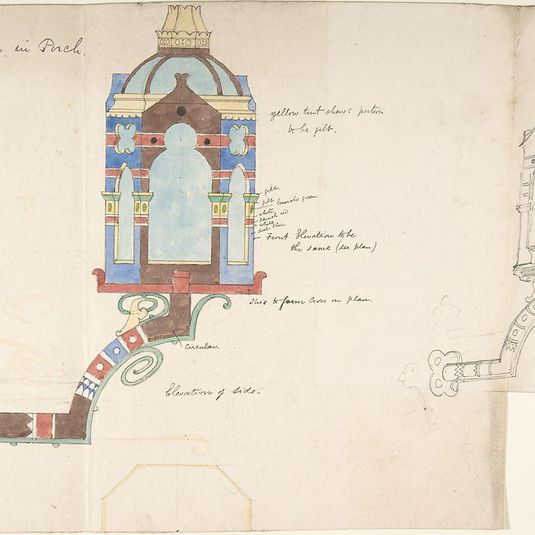 in Porch.
yellow tint shews portion
to be gilt.
gilt
gilt
white
white
Front Elevation to be
the same (see plan)
This to form cross on plan.
Circular.
Elevation of side.